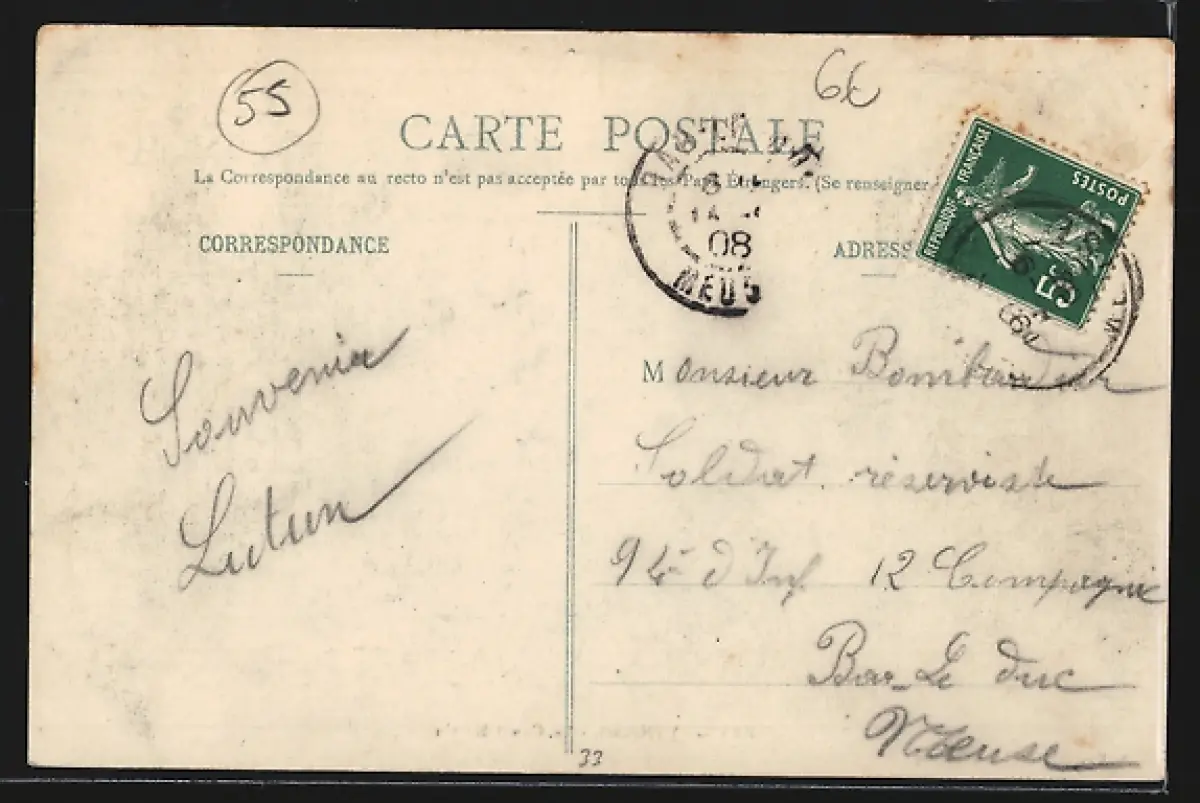 55
6€
CARTE POSTALE
La Correspondance au recto n'est pas acceptée par tous les Pays Étrangers. (Se renseigner
CORRESPONDANCE
ADRESS
REPUBLIQUE FRANÇAISE
POSTES
5c
08
MEUS
Souvenir
Lutun
Monsieur Bombardier
Soldat réserviste
94e d'Inf 12 Compagnie
Bar-Le duc
Meuse
33